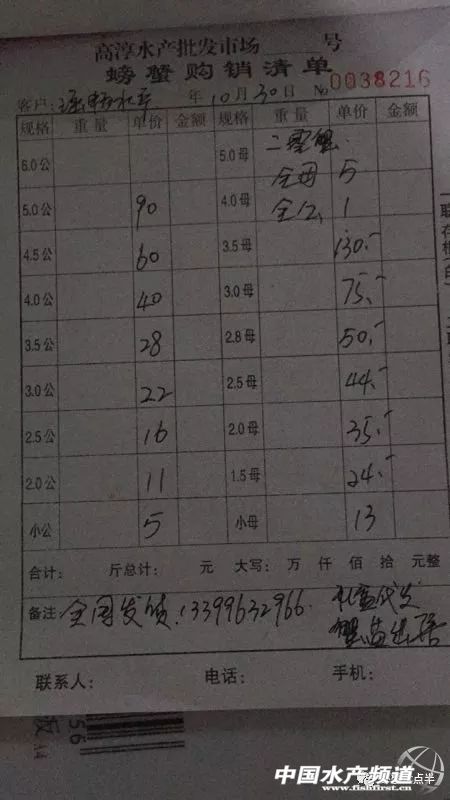 高淳水产批发市场 号
螃蟹购销清单
客户: 水产 年10月30日 No 0038216
规格 重量 单价 金额 规格 重量 单价 金额
6.0公 5.0母 二 蟹
5.0公 90 4.0母 全母 5
全公 1
4.5公 60 3.5母 130.-
4.0公 40 3.0母 75.-
3.5公 28 2.8母 50.-
3.0公 22 2.5母 44.-
2.5公 16 2.0母 35.-
2.0公 11 1.5母 24.-
小公 5 小母 13
合计: 斤总计: 元 大写: 万 仟 佰 拾 元整
备注 全国发货:13399632966. 礼盒代发
蟹苗出售
联系人: 电话: 手机:
56
中国水产频道
www.fishfirst.cn
点半